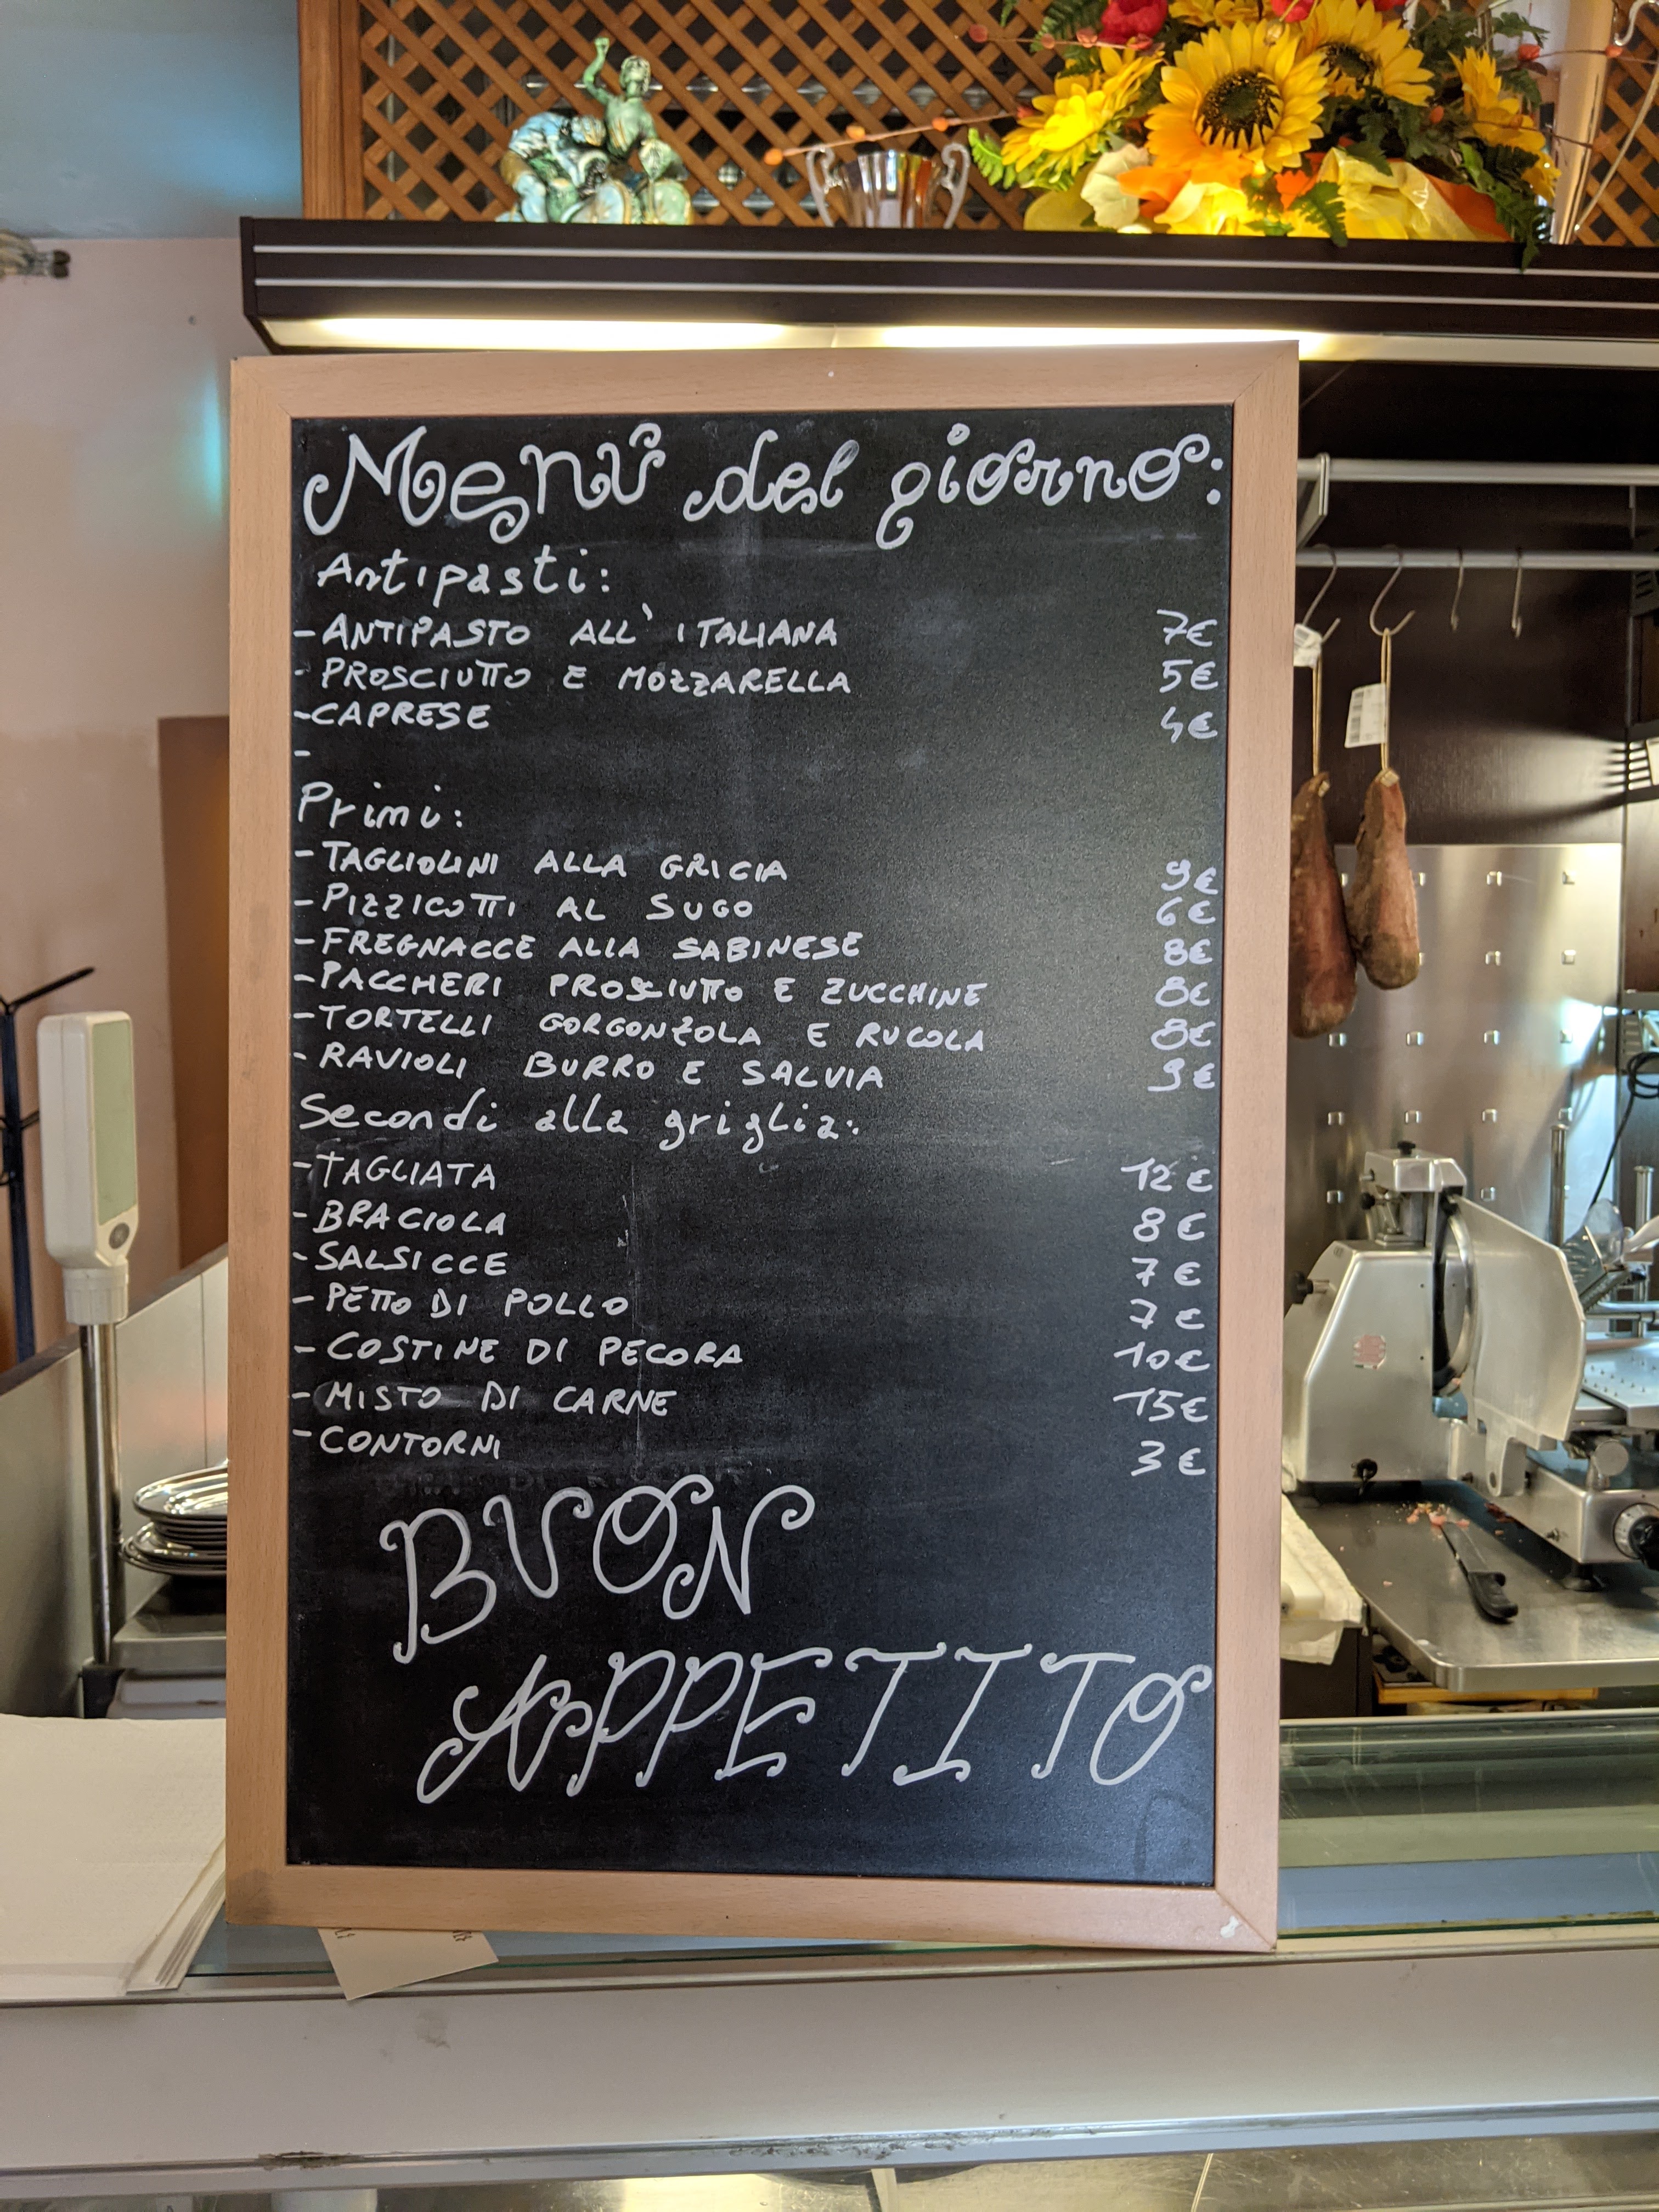 Menù del giorno:
Antipasti:
- ANTIPASTO ALL' ITALIANA 7€
- PROSCIUTTO E MOZZARELLA 5€
- CAPRESE 4€
-
Primi:
- TAGLIOLINI ALLA GRICIA 9€
- PIZZICOTTI AL SUGO 6€
- FREGNACCE ALLA SABINESE 8€
- PACCHERI PROSCIUTTO E ZUCCHINE 8€
- TORTELLI GORGONZOLA E RUCOLA 8€
- RAVIOLI BURRO E SALVIA 9€
Secondi alla griglia:
- TAGLIATA 12€
- BRACIOLA 8€
- SALSICCE 7€
- PETTO DI POLLO 7€
- COSTINE DI PECORA 10€
- MISTO DI CARNE 15€
- CONTORNI 3€
BUON
APPETITO